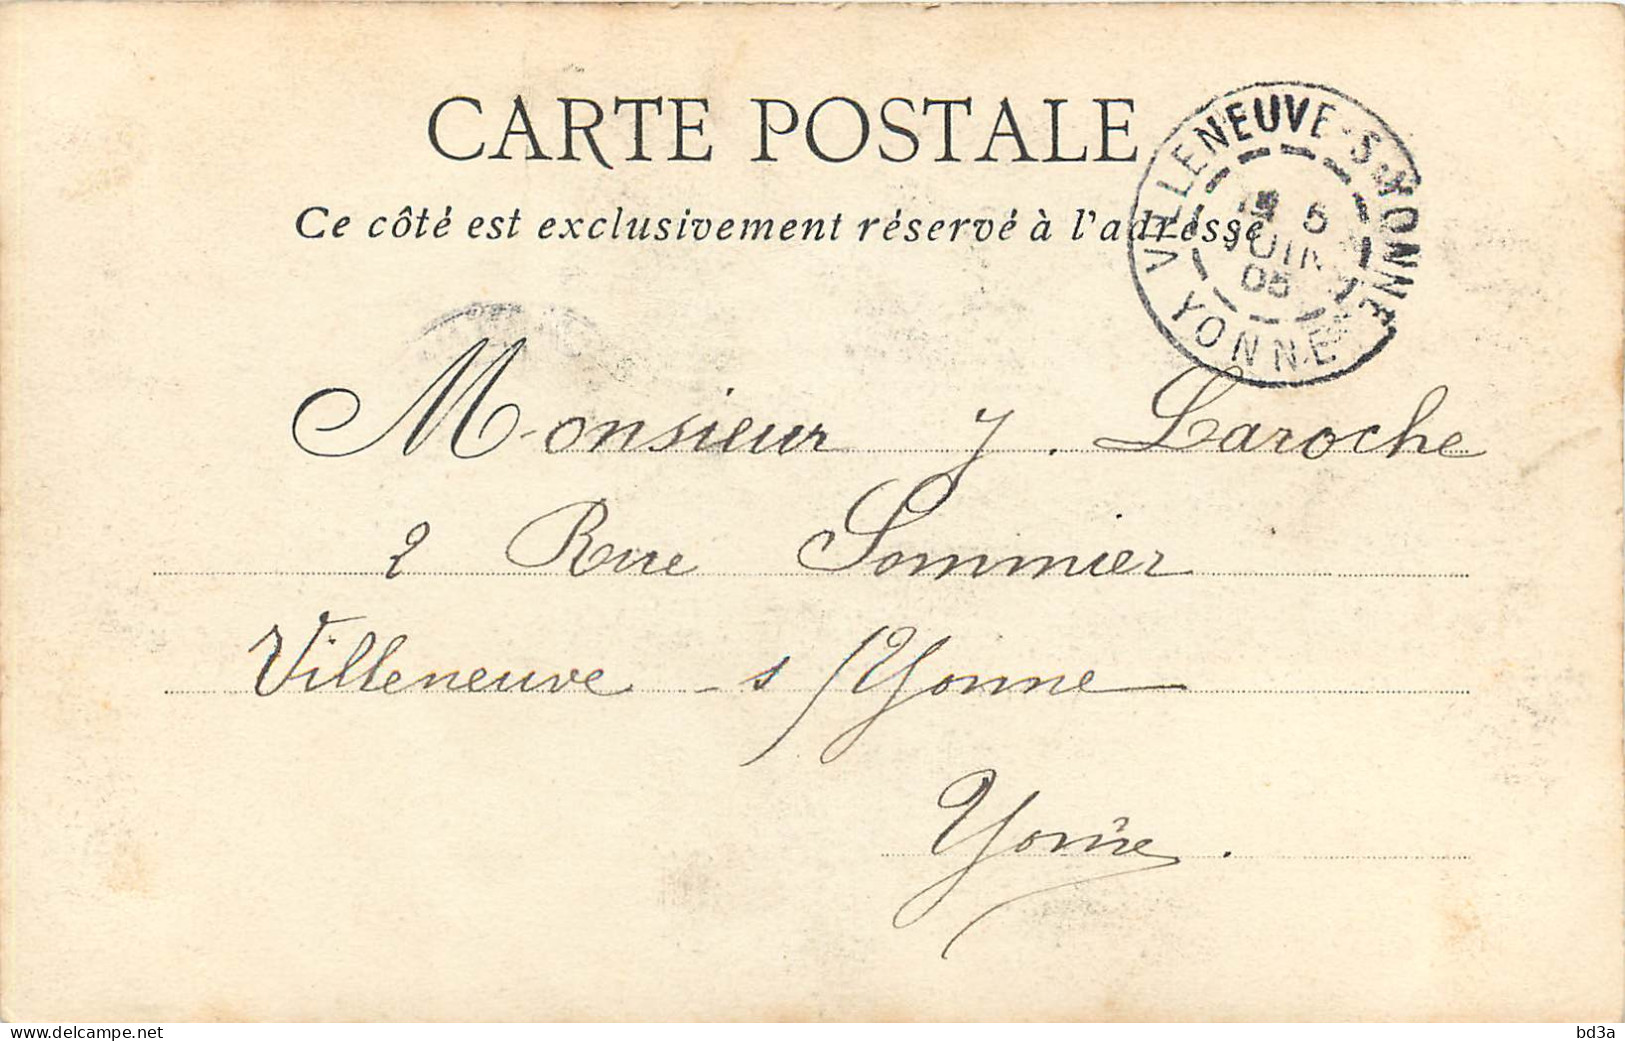 CARTE POSTALE
Ce côté est exclusivement réservé à l'adresse
VILLENEUVE-S-YONNE
5
JUIN
05
YONNE
Monsieur J. Laroche
2 Rue Sommier
Villeneuve - s/Yonne
Yonne.
www.delcampe.net
bd3a